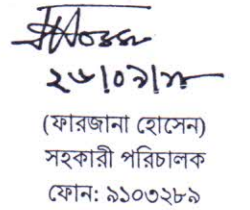 (ফারজানা হোসেন)
সহকারী পরিচালক
ফোন: ৯১০৩২৮৯